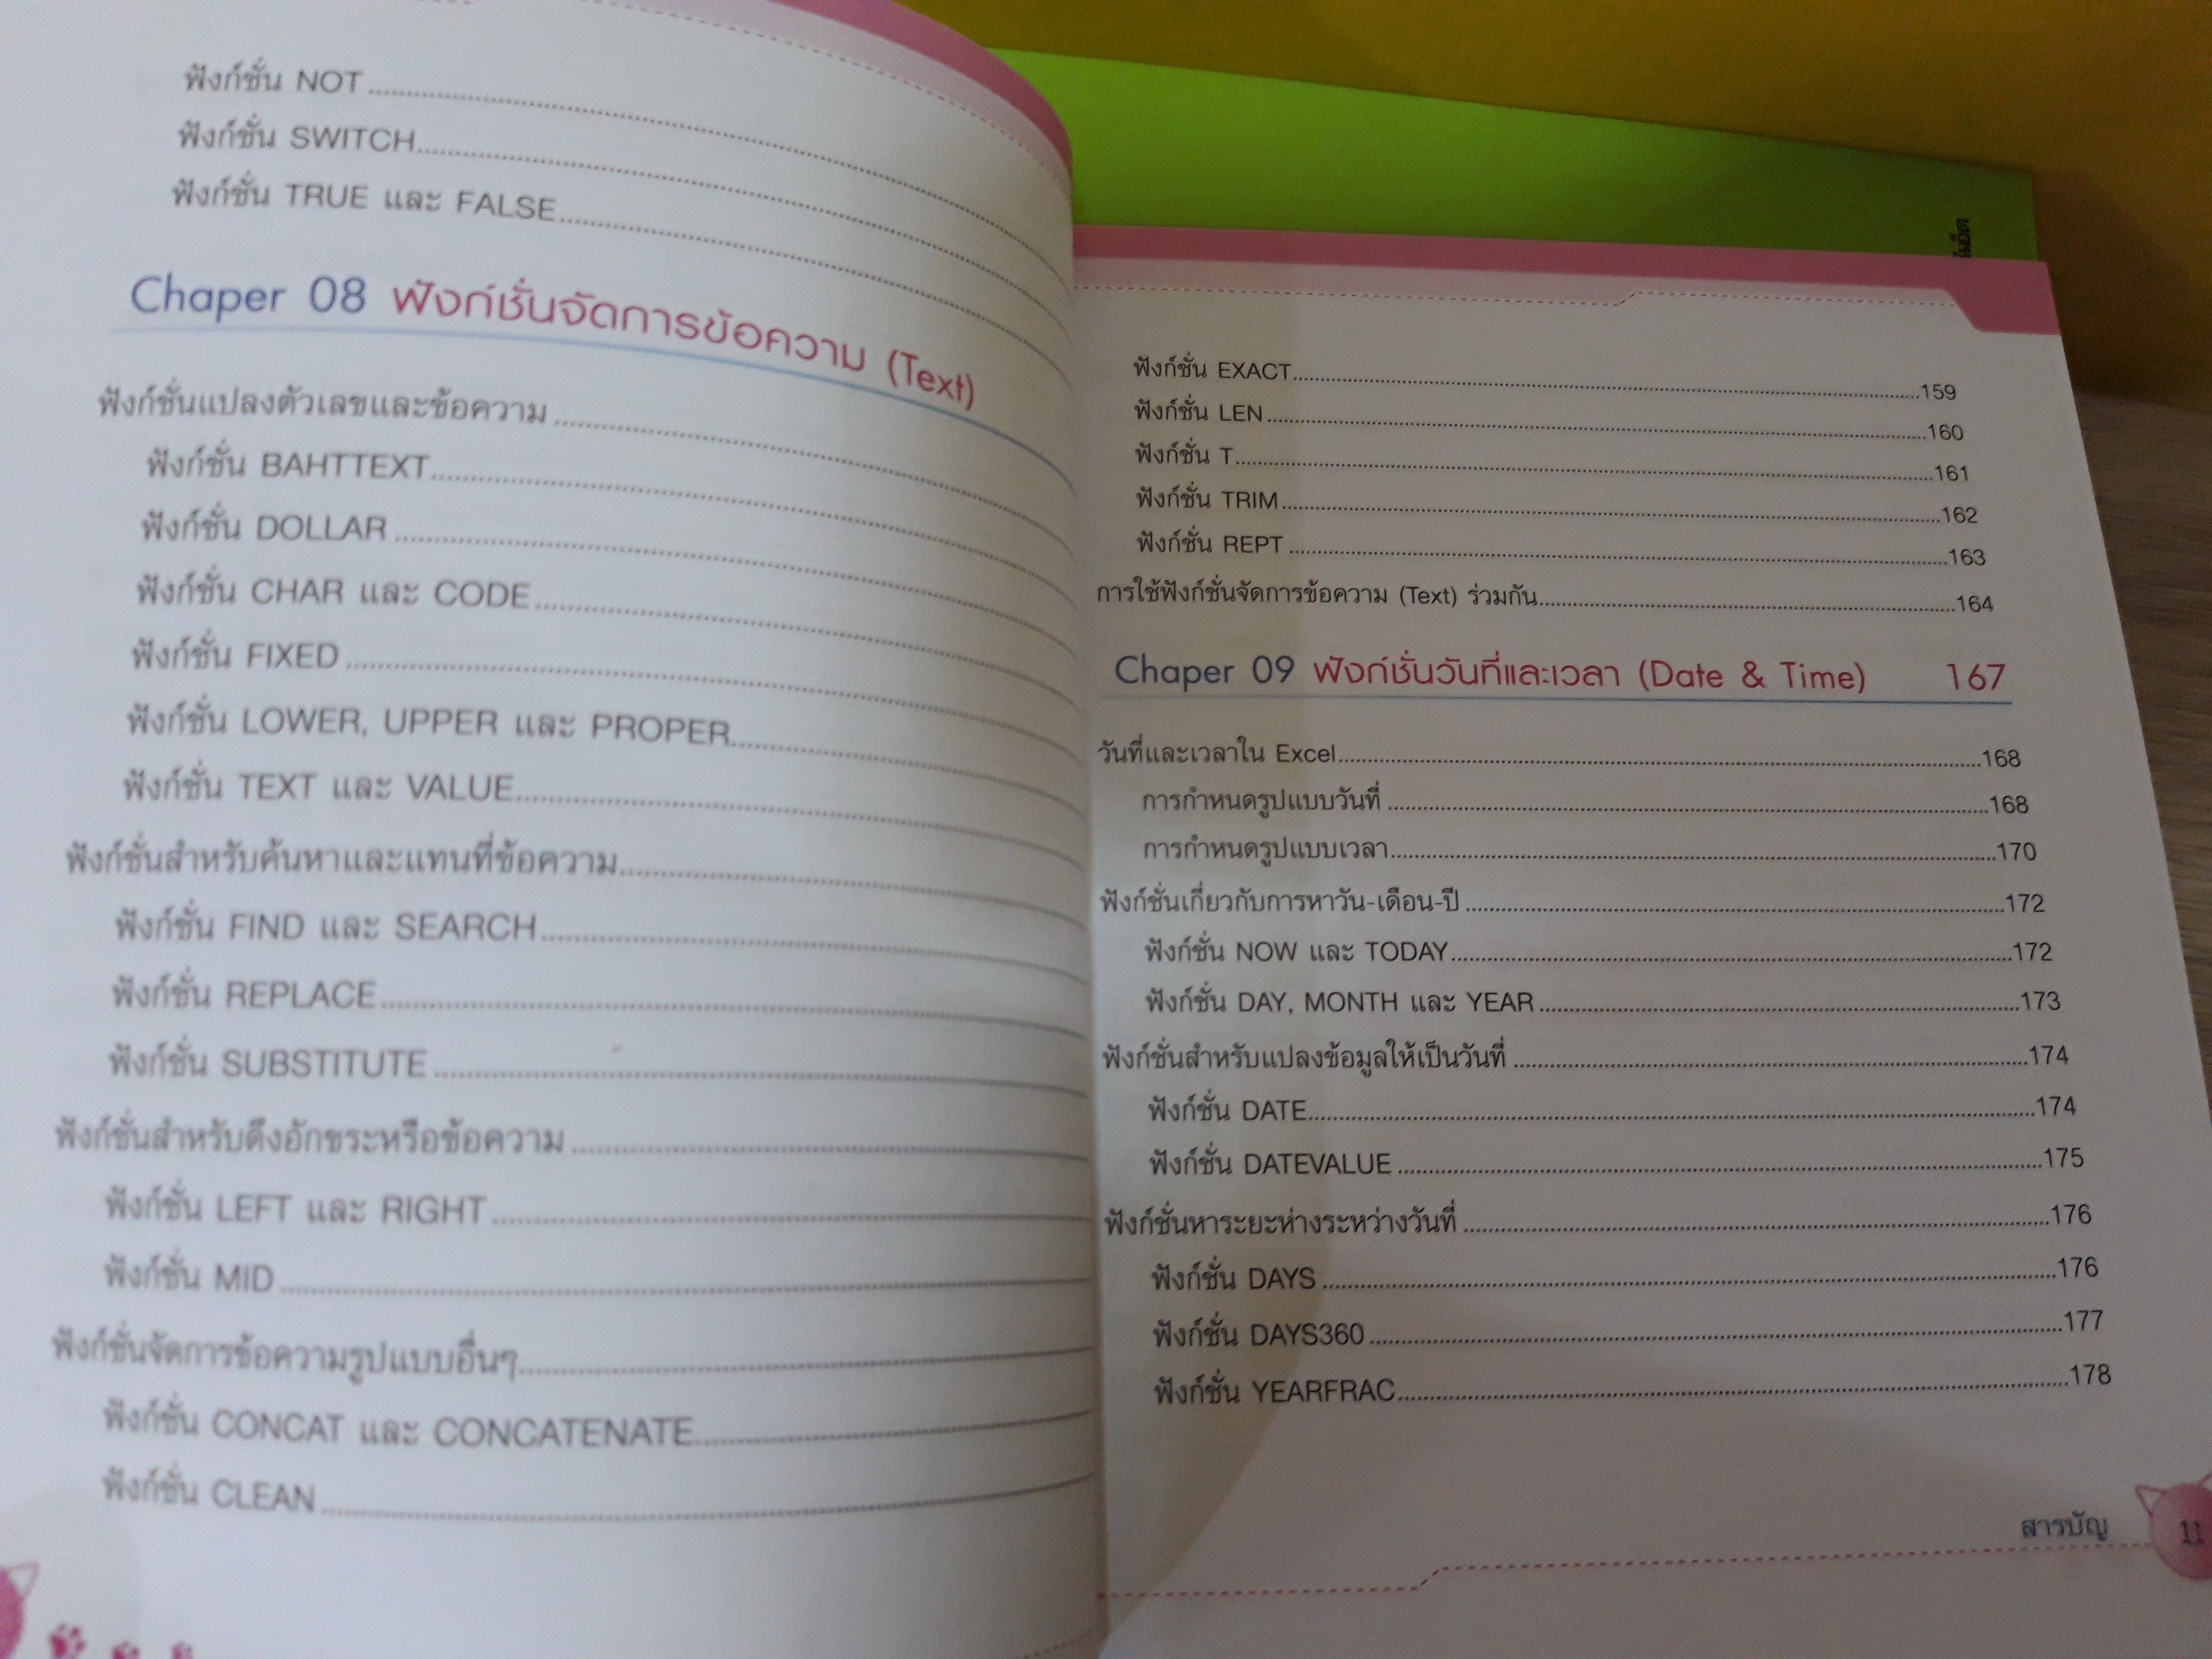 ฟังก์ชั่น NOT
ฟังก์ชั่น SWITCH
ฟังก์ชั่น TRUE และ FALSE
Chaper 08 ฟังก์ชั่นจัดการข้อความ (Text)
ฟังก์ชั่นแปลงตัวเลขและข้อความ
ฟังก์ชั่น BAHTTEXT
ฟังก์ชั่น DOLLAR
ฟังก์ชั่น CHAR และ CODE
ฟังก์ชั่น FIXED
ฟังก์ชั่น LOWER, UPPER และ PROPER
ฟังก์ชั่น TEXT และ VALUE
ฟังก์ชั่นสำหรับค้นหาและแทนที่ข้อความ
ฟังก์ชั่น FIND และ SEARCH
ฟังก์ชั่น REPLACE
ฟังก์ชั่น SUBSTITUTE
ฟังก์ชั่นสำหรับดึงอักขระหรือข้อความ
ฟังก์ชั่น LEFT และ RIGHT
ฟังก์ชั่น MID
ฟังก์ชั่นจัดการข้อความรูปแบบอื่นๆ
ฟังก์ชั่น CONCAT และ CONCATENATE
ฟังก์ชั่น CLEAN
ฟังก์ชั่น EXACT 159
ฟังก์ชั่น LEN 160
ฟังก์ชั่น T 161
ฟังก์ชั่น TRIM 162
ฟังก์ชั่น REPT 163
การใช้ฟังก์ชั่นจัดการข้อความ (Text) ร่วมกัน 164
Chaper 09 ฟังก์ชั่นวันที่และเวลา (Date & Time) 167
วันที่และเวลาใน Excel 168
การกำหนดรูปแบบวันที่ 168
การกำหนดรูปแบบเวลา 170
ฟังก์ชั่นเกี่ยวกับการหาวัน-เดือน-ปี 172
ฟังก์ชั่น NOW และ TODAY 172
ฟังก์ชั่น DAY, MONTH และ YEAR 173
ฟังก์ชั่นสำหรับแปลงข้อมูลให้เป็นวันที่ 174
ฟังก์ชั่น DATE 174
ฟังก์ชั่น DATEVALUE 175
ฟังก์ชั่นหาระยะห่างระหว่างวันที่ 176
ฟังก์ชั่น DAYS 176
ฟังก์ชั่น DAYS360 177
ฟังก์ชั่น YEARFRAC 178
สารบัญ 11